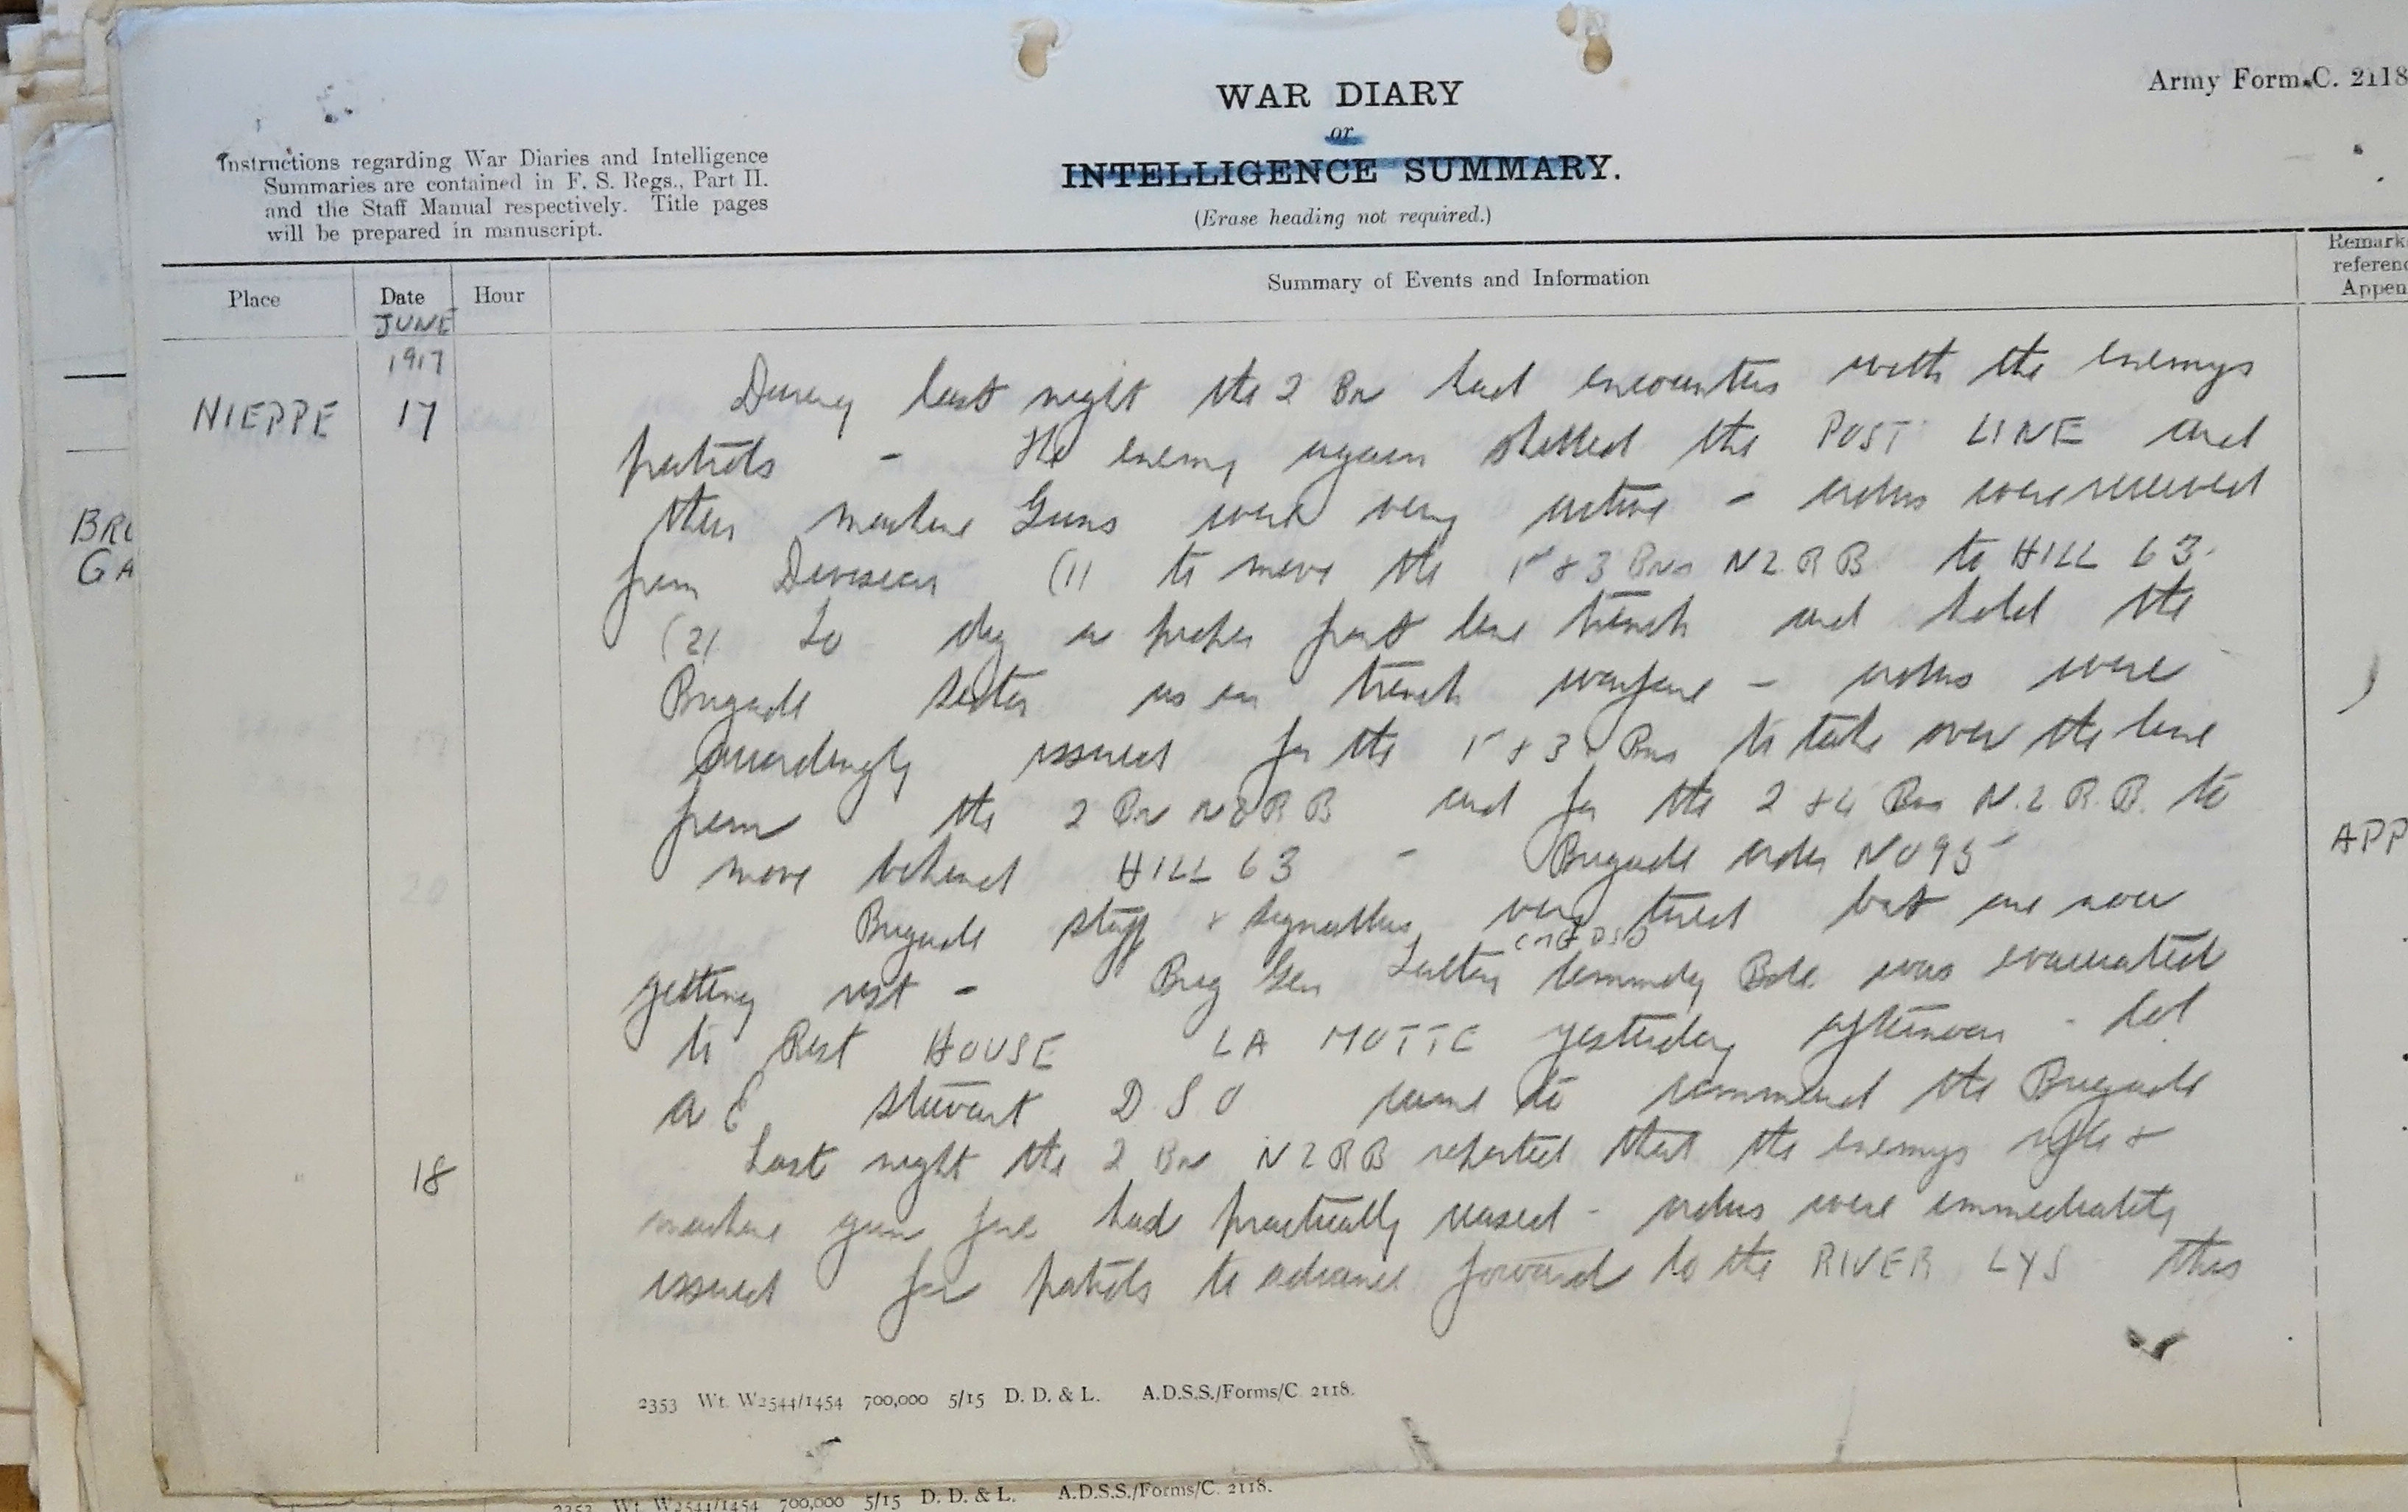 Army Form C. 2118
WAR DIARY
or
INTELLIGENCE SUMMARY.
(Erase heading not required.)
Instructions regarding War Diaries and Intelligence
Summaries are contained in F. S. Regs., Part II.
and the Staff Manual respectively. Title pages
will be prepared in manuscript.
Place
Date
Hour
Summary of Events and Information
Remark
referenc
Appen
JUNE
1917
NIEPPE
17
During last night the 2 Bn had encounters with the enemys
patrols - The enemy again shelled the POST LINE and
their machine Guns were very active - orders were received
from Division (1) to move the 1st & 3 Bns NZRB to HILL 63.
(2) To dig a proper front line trench and hold the
Brigade sector as in trench warfare - orders were
accordingly issued for the 1st & 3 Bns to take over the line
from the 2 Bn NZRB and for the 2 & 4 Bns N.Z.R.B. to
move behind HILL 63 - Brigade order No 95
APP
Brigade staff & signallers very tired but are now
CMG DSO
getting rest - Brig Gen Fulton Commndg Bde was evacuated
to Rest HOUSE LA MOTTE yesterday afternoon - Col
A E Stewart DSO came to command the Brigade
18
Last night the 2 Bn NZRB reported that the enemys rifle &
machine gun fire had practically ceased - orders were immediately
issued for patrols to advance forward to the RIVER LYS this
2353 Wt. W2544/1454 700,000 5/15 D. D. & L. A.D.S.S./Forms/C. 2118.
BRO
GA
2353 Wt. W2544/1454 700,000 5/15 D. D. & L. A.D.S.S./Forms/C. 2118.